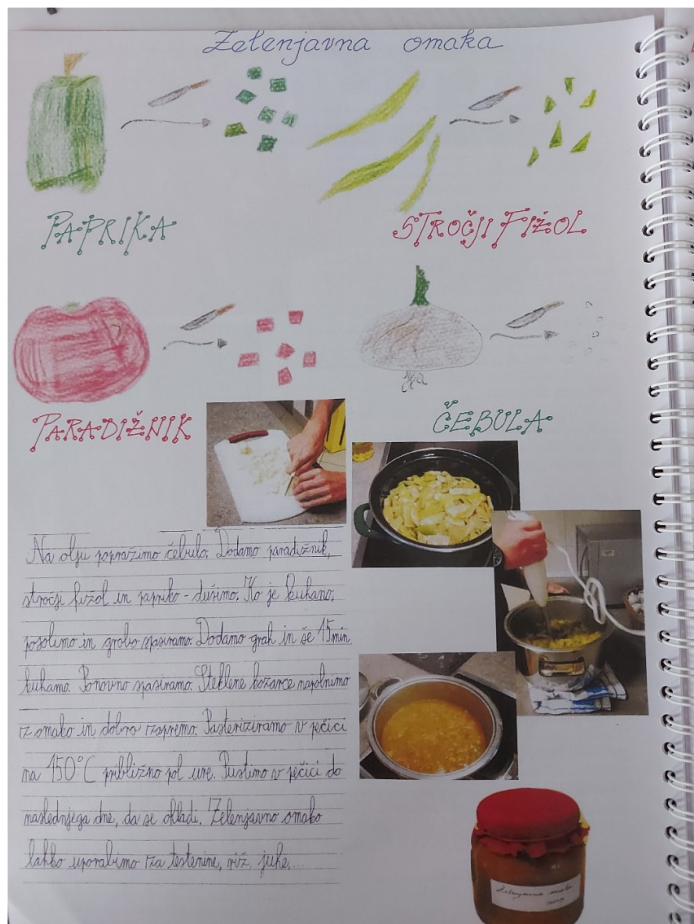 Zelenjavna omaka
PAPRIKA
STROČJI FIŽOL
PARADIŽNIK
ČEBULA
Na olju popražimo čebulo. Dodamo paradižnik,
stročji fižol in papriko - dušimo. Ko je kuhano,
posolimo in grobo spasiramo. Dodamo grah in še 15 min
kuhamo. Ponovno spasiramo. Steklene kozarce napolnimo
z omako in dobro zapremo. Pasteriziramo v pečici
na 150°C približno pol ure. Pustimo v pečici do
naslednjega dne, da se ohladi. Zelenjavno omako
lahko uporabimo za testenine, riž, juhe...
Zelenjavna omaka